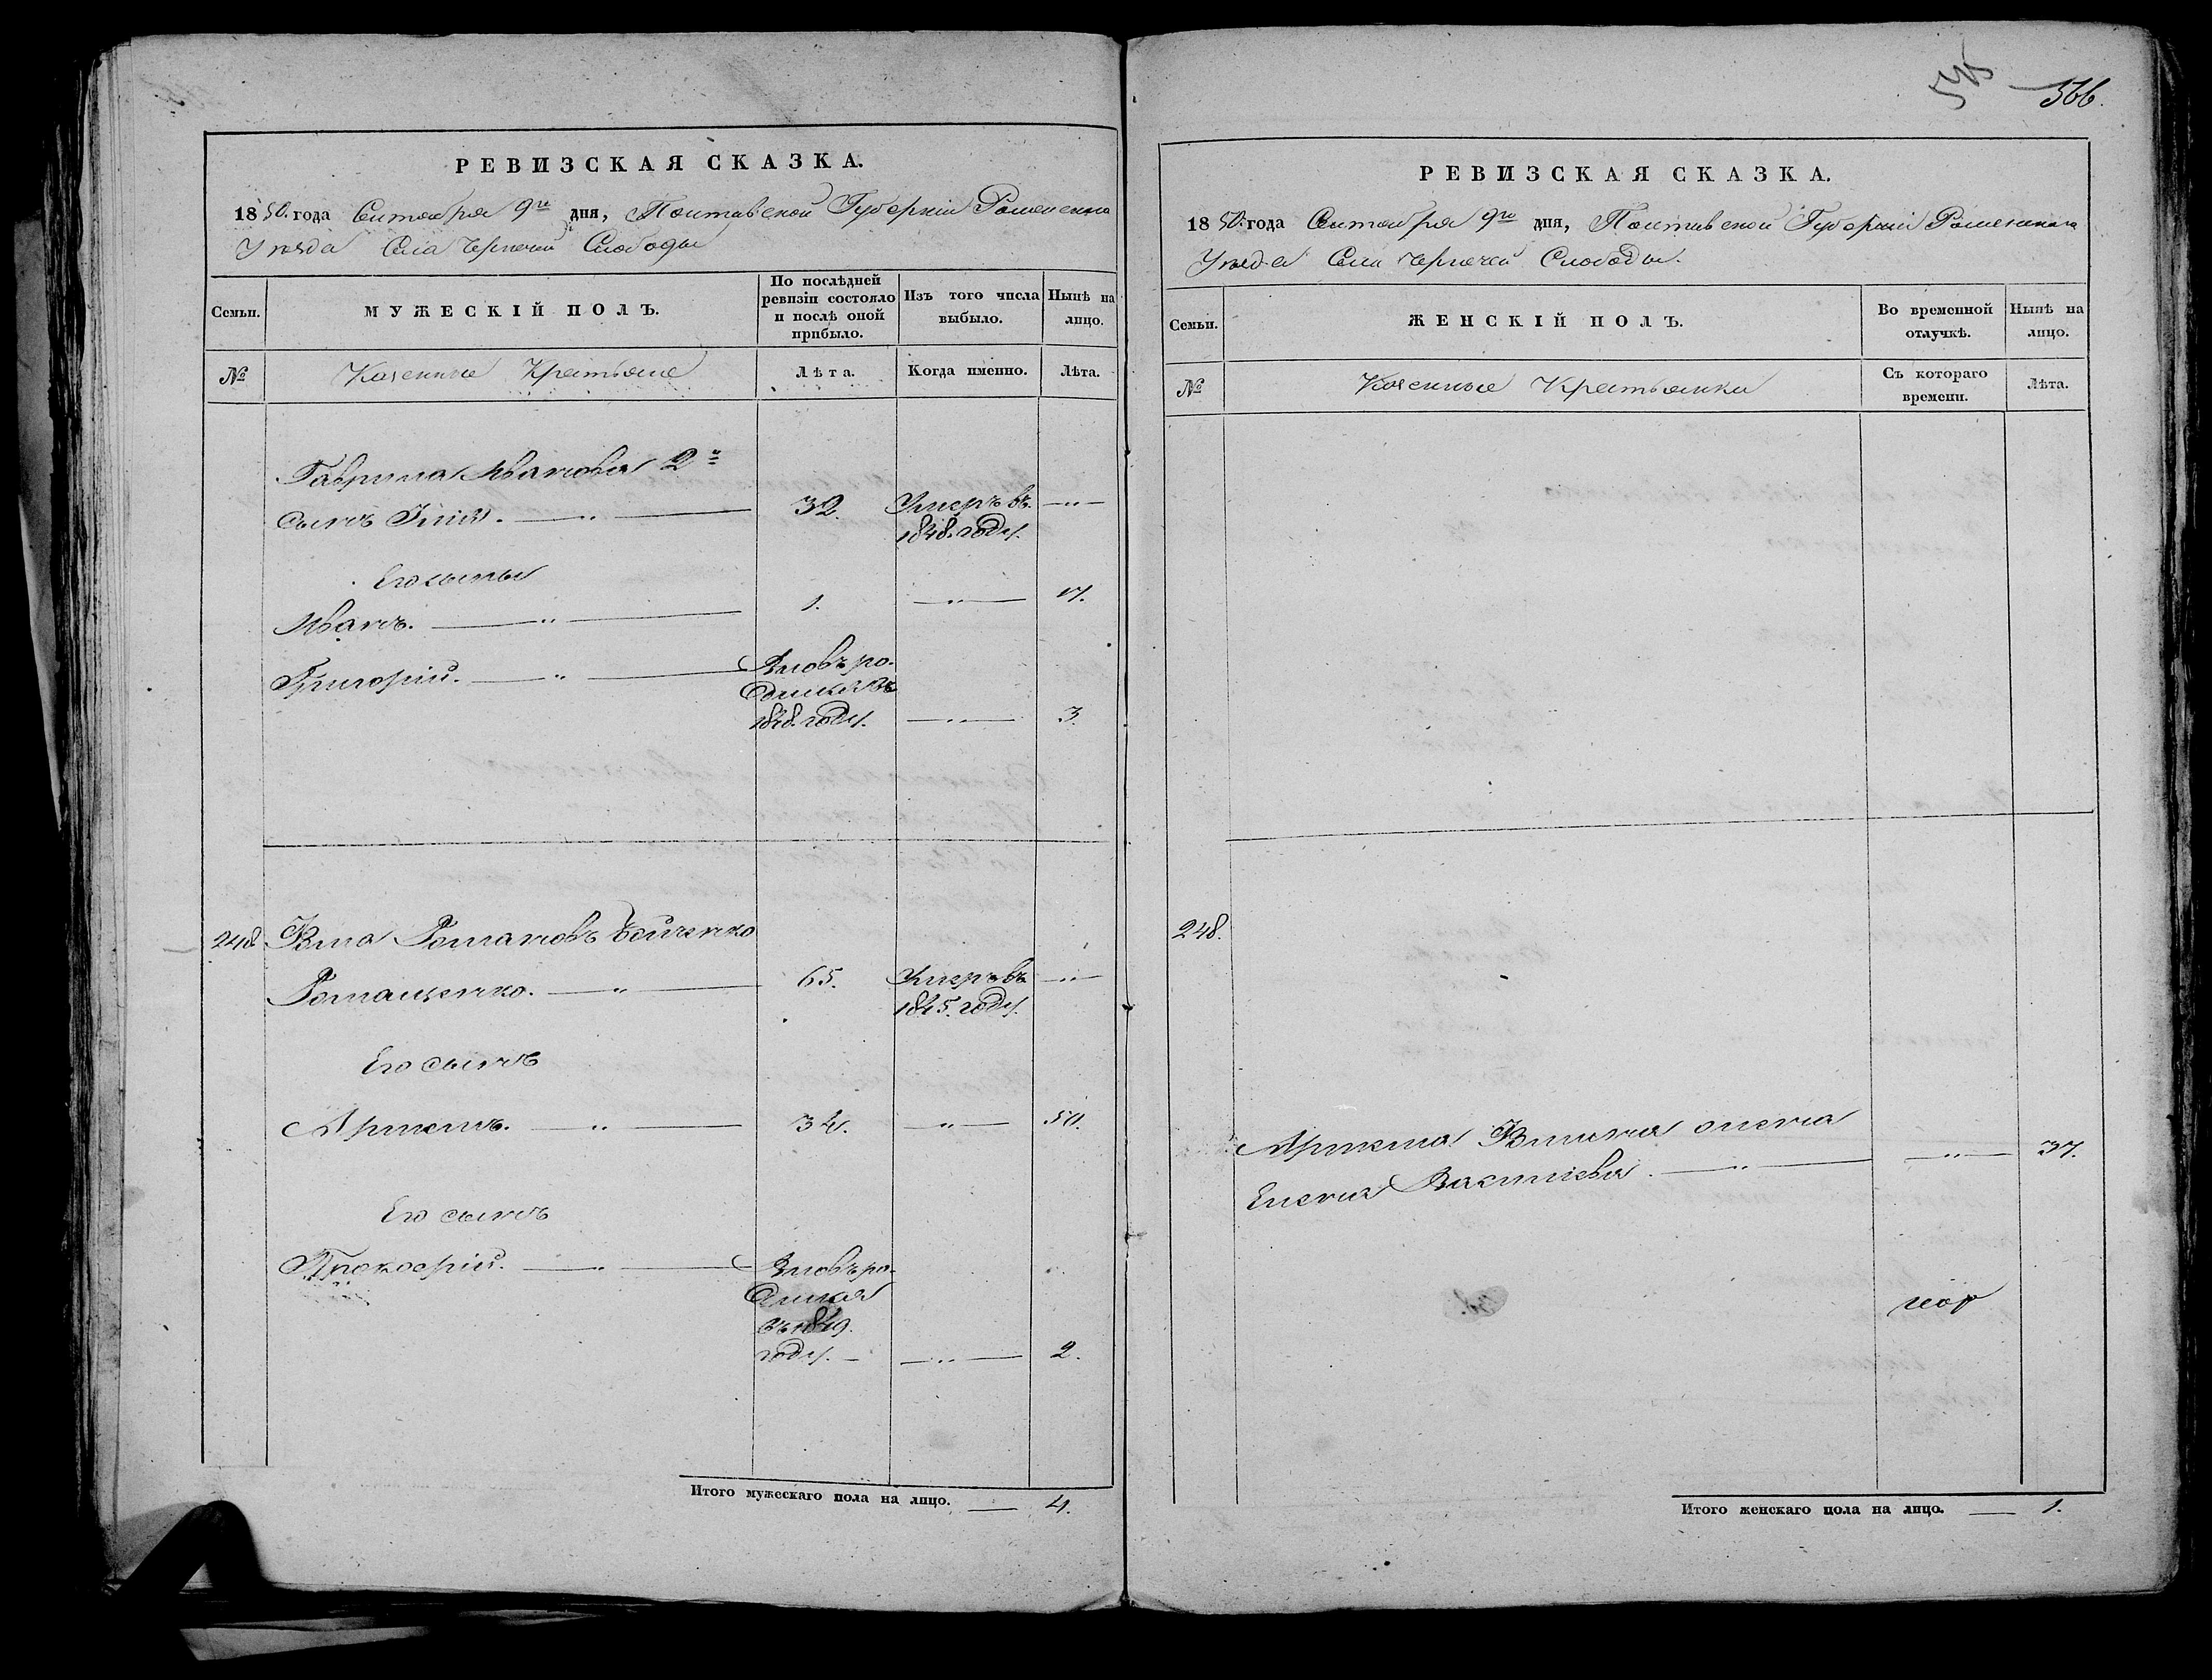 РЕВИЗСКАЯ СКАЗКА.
1850. года Сентября 9го дня, Полтавской Губерніи Роменскаго
Уезда Села Чернечей Слободы
Семьи.
МУЖЕСКІЙ ПОЛЪ.
По послѣдней ревизіи состояло и послѣ оной прибыло.
Изъ того числа выбыло.
Нынѣ на лицо.
№
Казенные Крестьяне
Лѣта.
Когда именно.
Лѣта.
Гаврила Иванова 2й
сынъ 32. Умеръ въ
1848. году.
Его сыны
Иванъ. 1. 17.
Григорій. Вновь ро-
дился въ
1848. году. 3.
248. Романовъ
Романенко. 65. Умеръ въ
1845. году.
Его сынъ
Артемъ. 34. 50.
Его сынъ
Прокофій. Вновь ро-
дился
въ 1849.
году. 2.
Итого мужескаго пола на лицо. 4.
545 566.
РЕВИЗСКАЯ СКАЗКА.
1850. года Сентября 9го дня, Полтавской Губерніи Роменскаго
Уезда Села Чернечей Слободы.
Семьи.
ЖЕНСКІЙ ПОЛЪ.
Во временной отлучкѣ.
Нынѣ на лицо.
№
Казенные Крестьянки
Съ котораго времени.
Лѣта.
248.
Артема жена
Елена Васильева. 37.
Итого женскаго пола на лицо. 1.